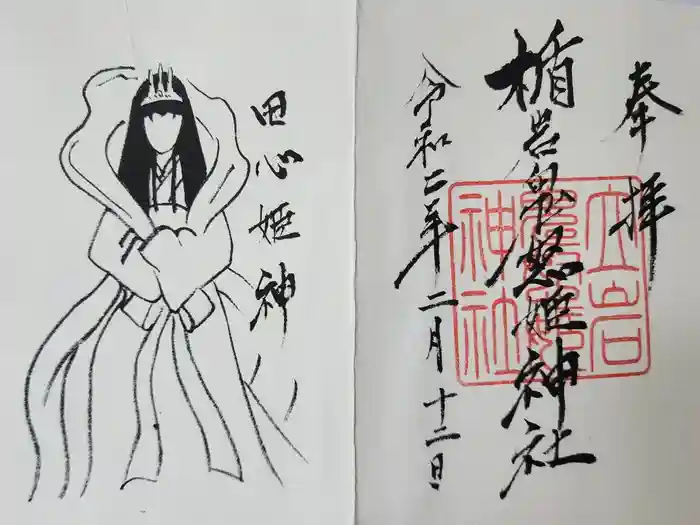 奉拝
楯岩鬼怒姫神社
令和二年二月十二日
田心姫神
立岩
神社